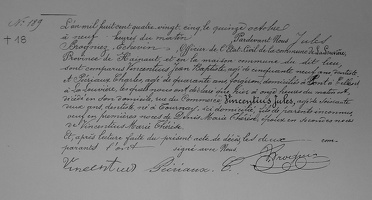 No 189
+18
L'an mil huit cent quatre vingt cinq, le quinze octobre
à neuf heures du matin Pardevant Nous Jules
Échevin Officier de l'État Civil de la commune de La Louvière,
Province de Hainaut, et par la maison commune du dit lieu,
sont comparus Vincentius Jean Baptiste, âgé de cinquante neuf ans,
et Périaux Charles, âgé de quarante ans domiciliés à
La Louvière, lesquels nous ont déclaré que hier à onze heures du matin est
décédé en son domicile, rue du Commerce, Vincentius Jules, âgé de soixante
deux ans, dentiste, né à Tournay, y domicilié, de parents inconnus,
veuf en premières noces de Denis Marie Thérèse, époux en secondes noces
de Vincentius Marie Thérèse.
Et, après lecture faite du présent acte de décès les deux com-
parants l'ont signé avec Nous
Vincentius Périaux. C.